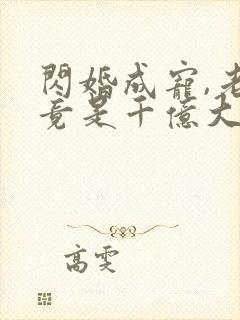 閃婚成寵,老
竟是千億大
高雯